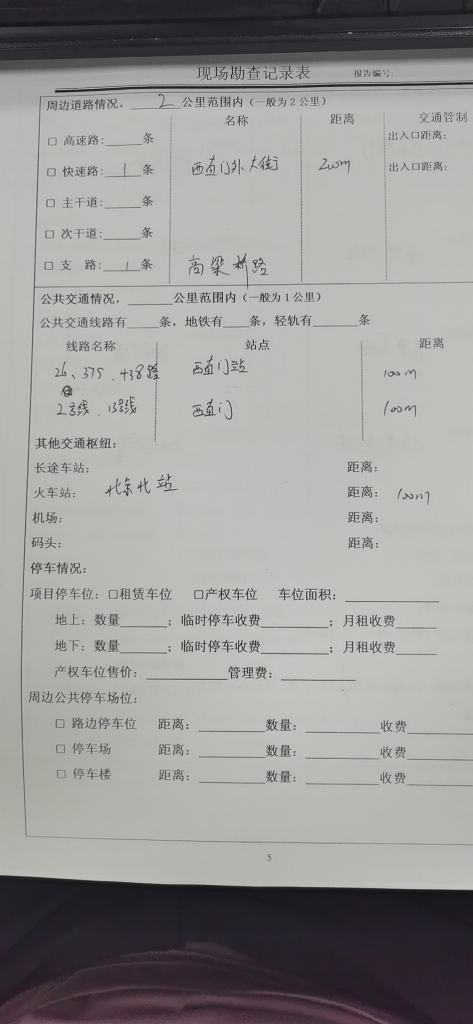 现场勘查记录表 报告编号:
周边道路情况，__2__公里范围内（一般为2公里）
名称 距离 交通管制
□ 高速路:____条 出入口距离:
□ 快速路:__1__条 西直门外大街 200m 出入口距离:
□ 主干道:____条
□ 次干道:____条
□ 支 路:__1__条 高梁桥路
公共交通情况，______公里范围内（一般为1公里）
公共交通线路有____条，地铁有____条，轻轨有____条
线路名称 站点 距离
26、375、438路 西直门站 100m
2号线、13号线 西直门 100m
其他交通枢纽:
长途车站: 距离:
火车站: 北京北站 距离: 100m
机场: 距离:
码头: 距离:
停车情况:
项目停车位: □租赁车位 □产权车位 车位面积:__________
地上: 数量______; 临时停车收费________; 月租收费_____
地下: 数量______; 临时停车收费________; 月租收费_____
产权车位售价:__________管理费:_________
周边公共停车场位:
□ 路边停车位 距离:________数量:_________收费____
□ 停车场 距离:________数量:_________收费____
□ 停车楼 距离:________数量:_________收费____
5